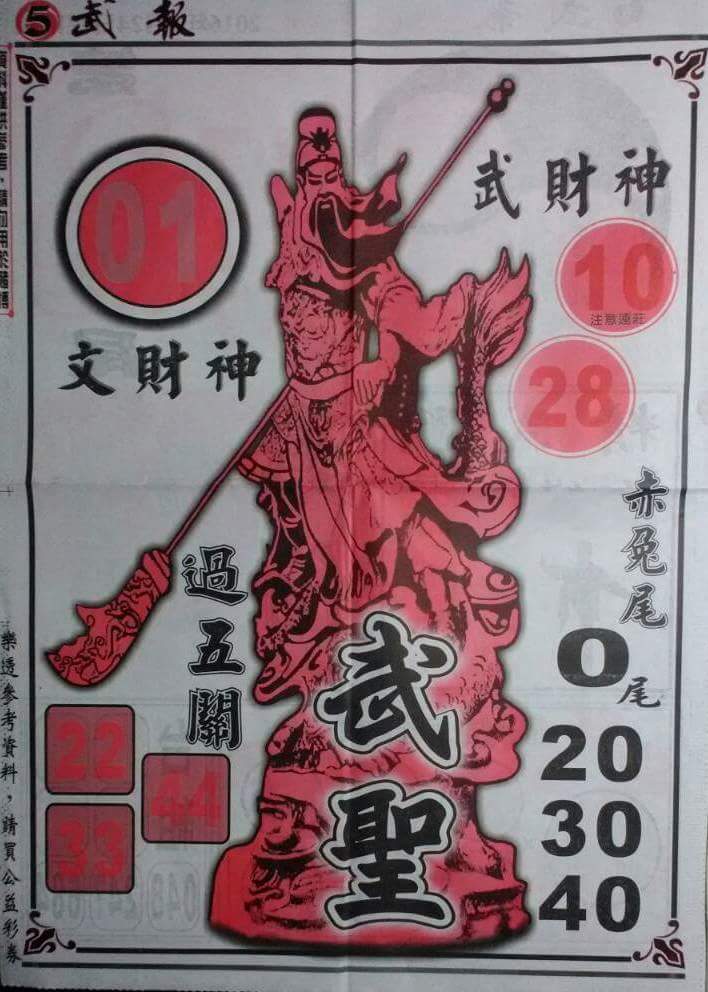 5 武報
武財神
01
10
注意連莊
文財神
28
赤兔尾
過五關
0尾
武聖
22
20
44
33
30
40
樂透參考資料，請買公益彩券